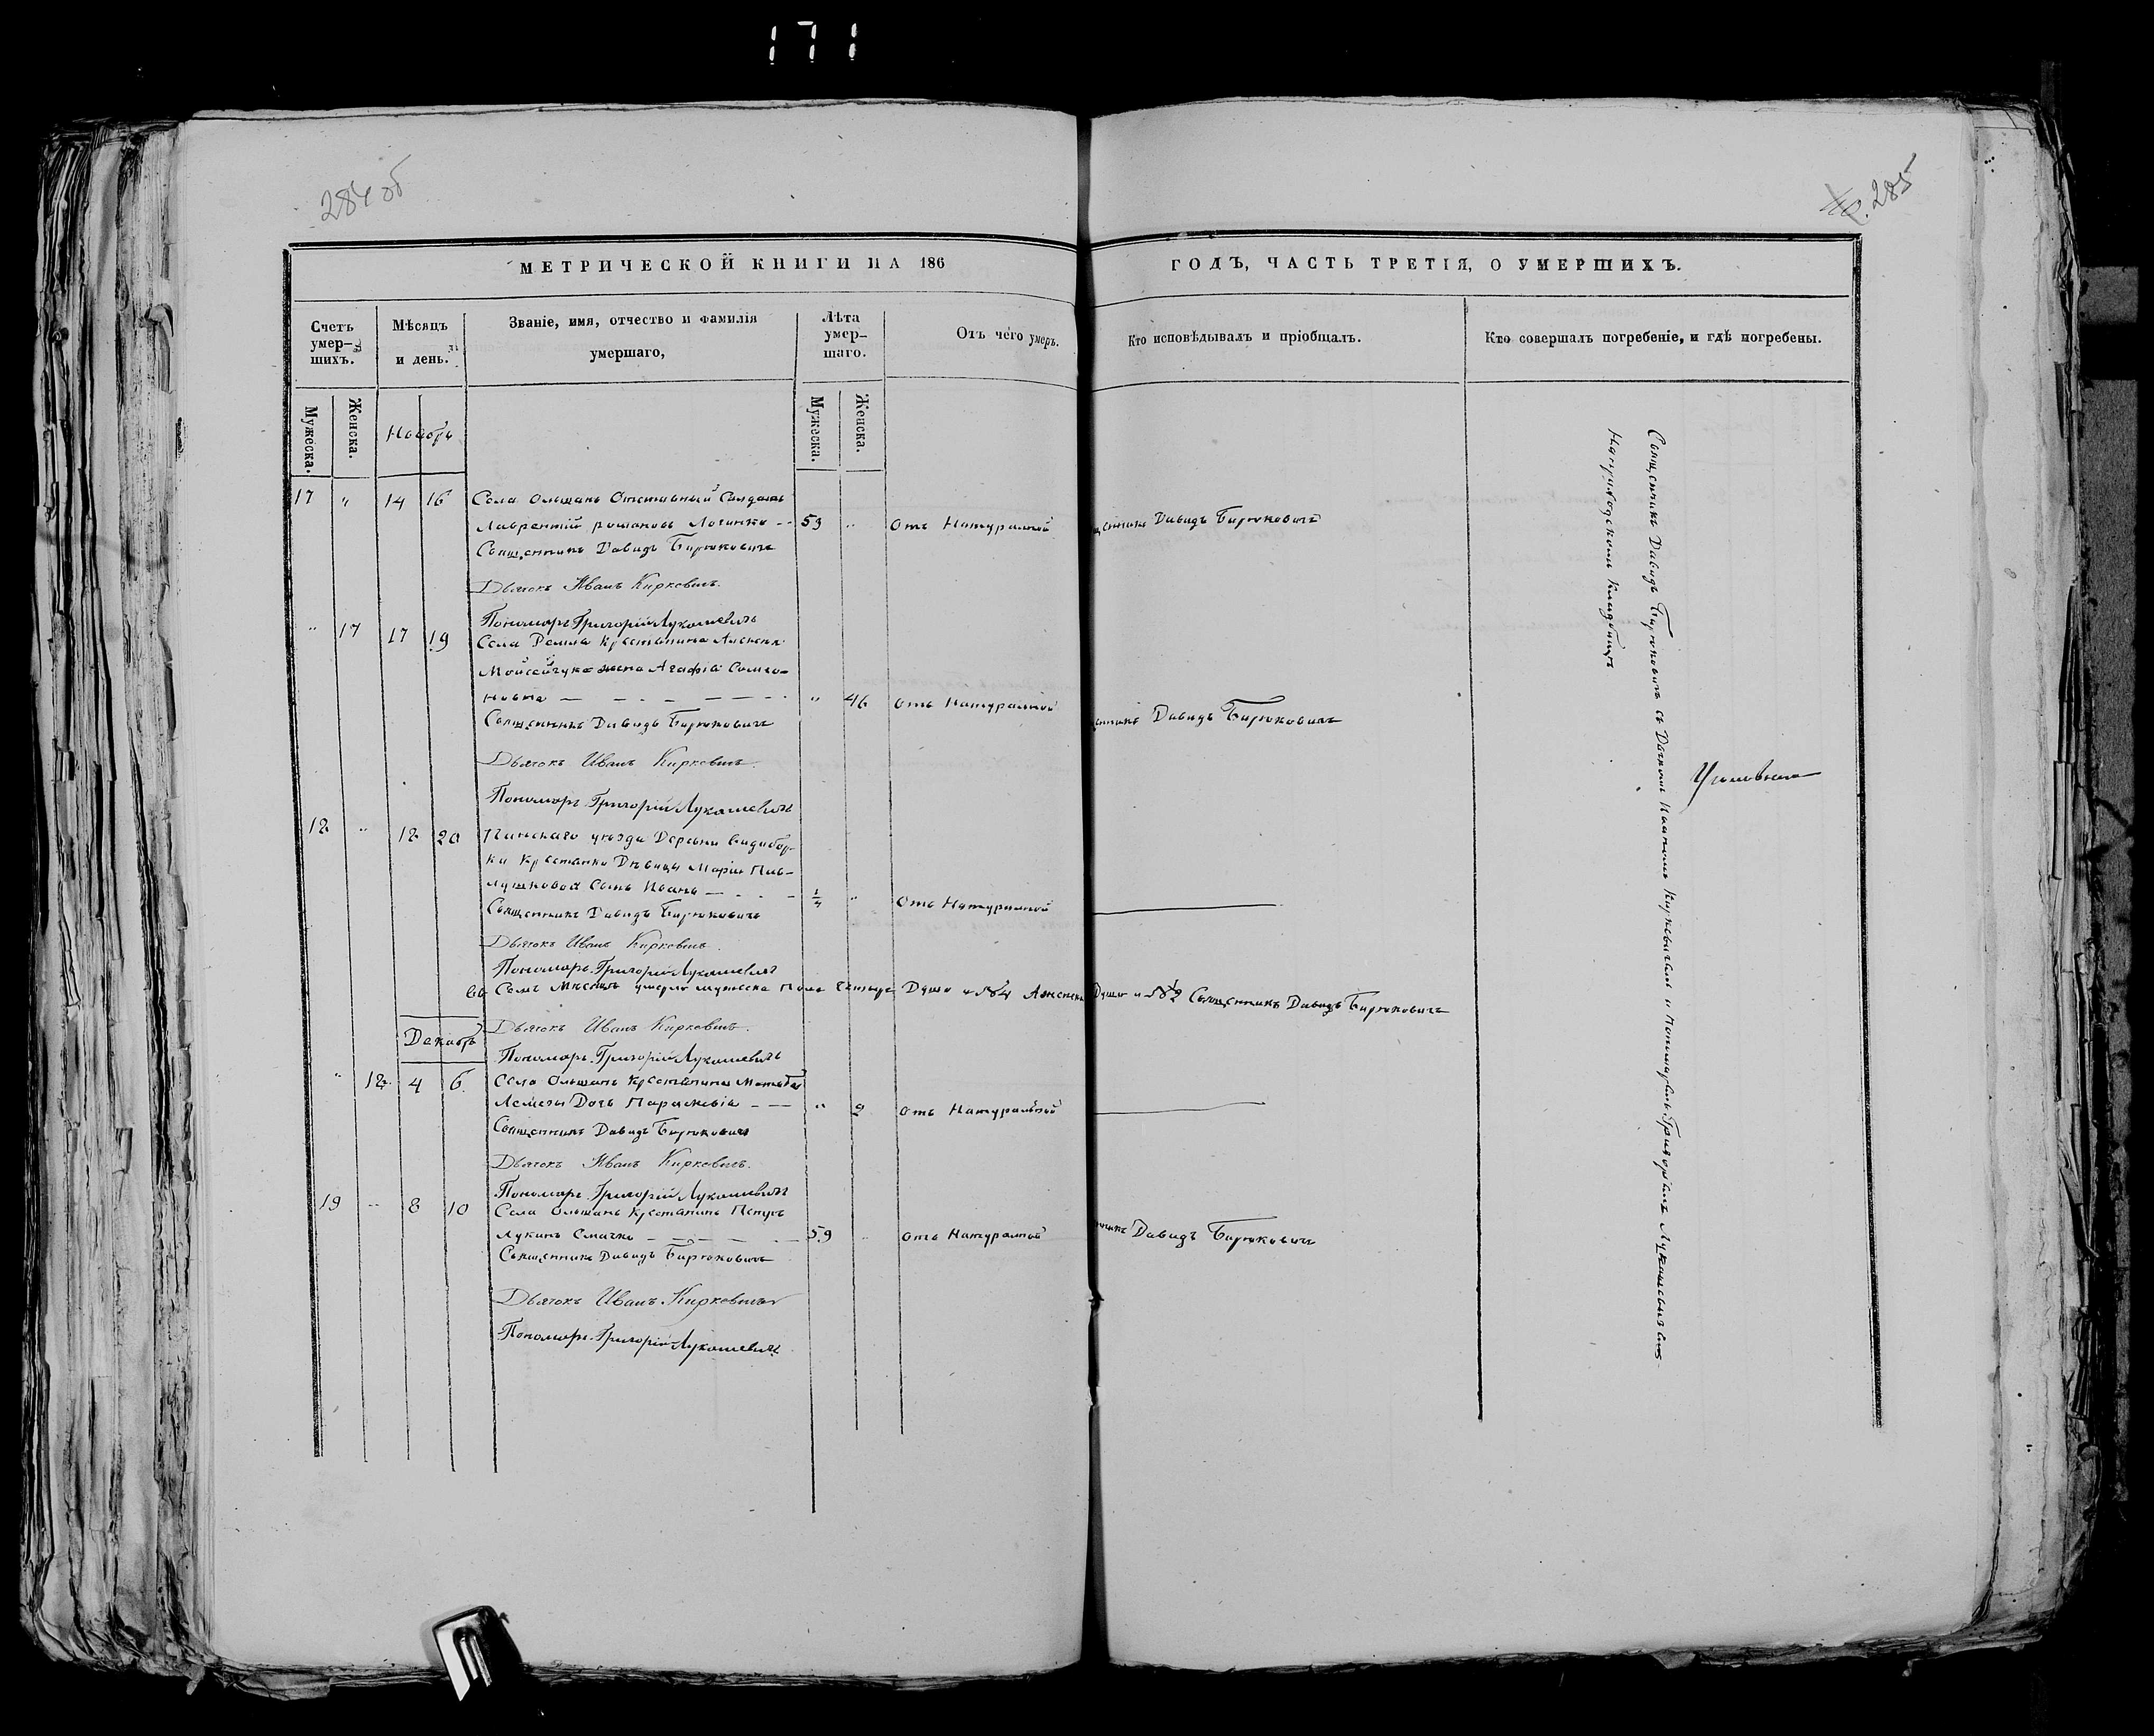 171
284 об
285
МЕТРИЧЕСКОЙ КНИГИ НА 186
ГОДЪ, ЧАСТЬ ТРЕТІЯ, О УМЕРШИХЪ.
Счетъ умер-шихъ.
Мѣсяцъ и день.
Званіе, имя, отчество и фамилія умершаго,
Лѣта умер-шаго.
Отъ чего умеръ.
Кто исповѣдывалъ и пріобщалъ.
Кто совершалъ погребеніе, и гдѣ погребены.
Мужеска.
Женска.
Ноябрь
Мужеска.
Женска.
17 " 14 16 Села Ольшанъ Отставный Солдатъ
Лаврентій романовъ -- 59 " Отъ Натуральной Давидъ Бирюковичъ
Священникъ Давидъ Бирюковичъ
Дьячокъ Иванъ Киркевичъ.
Пономарь Григорій Лукашевичъ
" 17 17 19 Села Ремля Крестьянина
Мойсейчука жена Агафія Самсо-
новна " 46 Отъ Натуральной Давидъ Бирюковичъ
Священникъ Давидъ Бирюковичъ
Дьячокъ Иванъ Киркевичъ.
Пономарь Григорій Лукашевичъ
18 " 18 20 Пинскаго уѣзда Деревни Видибор-
ки Крестьянки Дѣвицы Маріи Пав-
лушковой Сынъ Иванъ " Отъ Натуральной
Священникъ Давидъ Бирюковичъ
Дьячокъ Иванъ Киркевичъ.
Пономарь Григорій Лукашевичъ
Семъ Мѣсяцѣ умерло мужеска Пола Душъ Душъ Священникъ Давидъ Бирюковичъ
Дьячокъ Иванъ Киркевичъ.
Декабрь
Пономарь Григорій Лукашевичъ
" 18 4 6 Села Ольшанъ Крестьянина
Дочь Параскевія " 2 Отъ Натуральной
Священникъ Давидъ Бирюковичъ
Дьячокъ Иванъ Киркевичъ.
Пономарь Григорій Лукашевичъ
19 " 8 10 Села Ольшанъ Крестьянинъ
Лукинъ Смачко 59 " Отъ Натуральной Давидъ Бирюковичъ
Священникъ Давидъ Бирюковичъ
Дьячокъ Иванъ Киркевичъ
Пономарь Григорій Лукашевичъ
Священникъ Давидъ Бирюковичъ съ Дьячкомъ Иваномъ Киркевичемъ и Пономаремъ Григоріемъ Лукашевичемъ
На приходскомъ Кладбищѣ